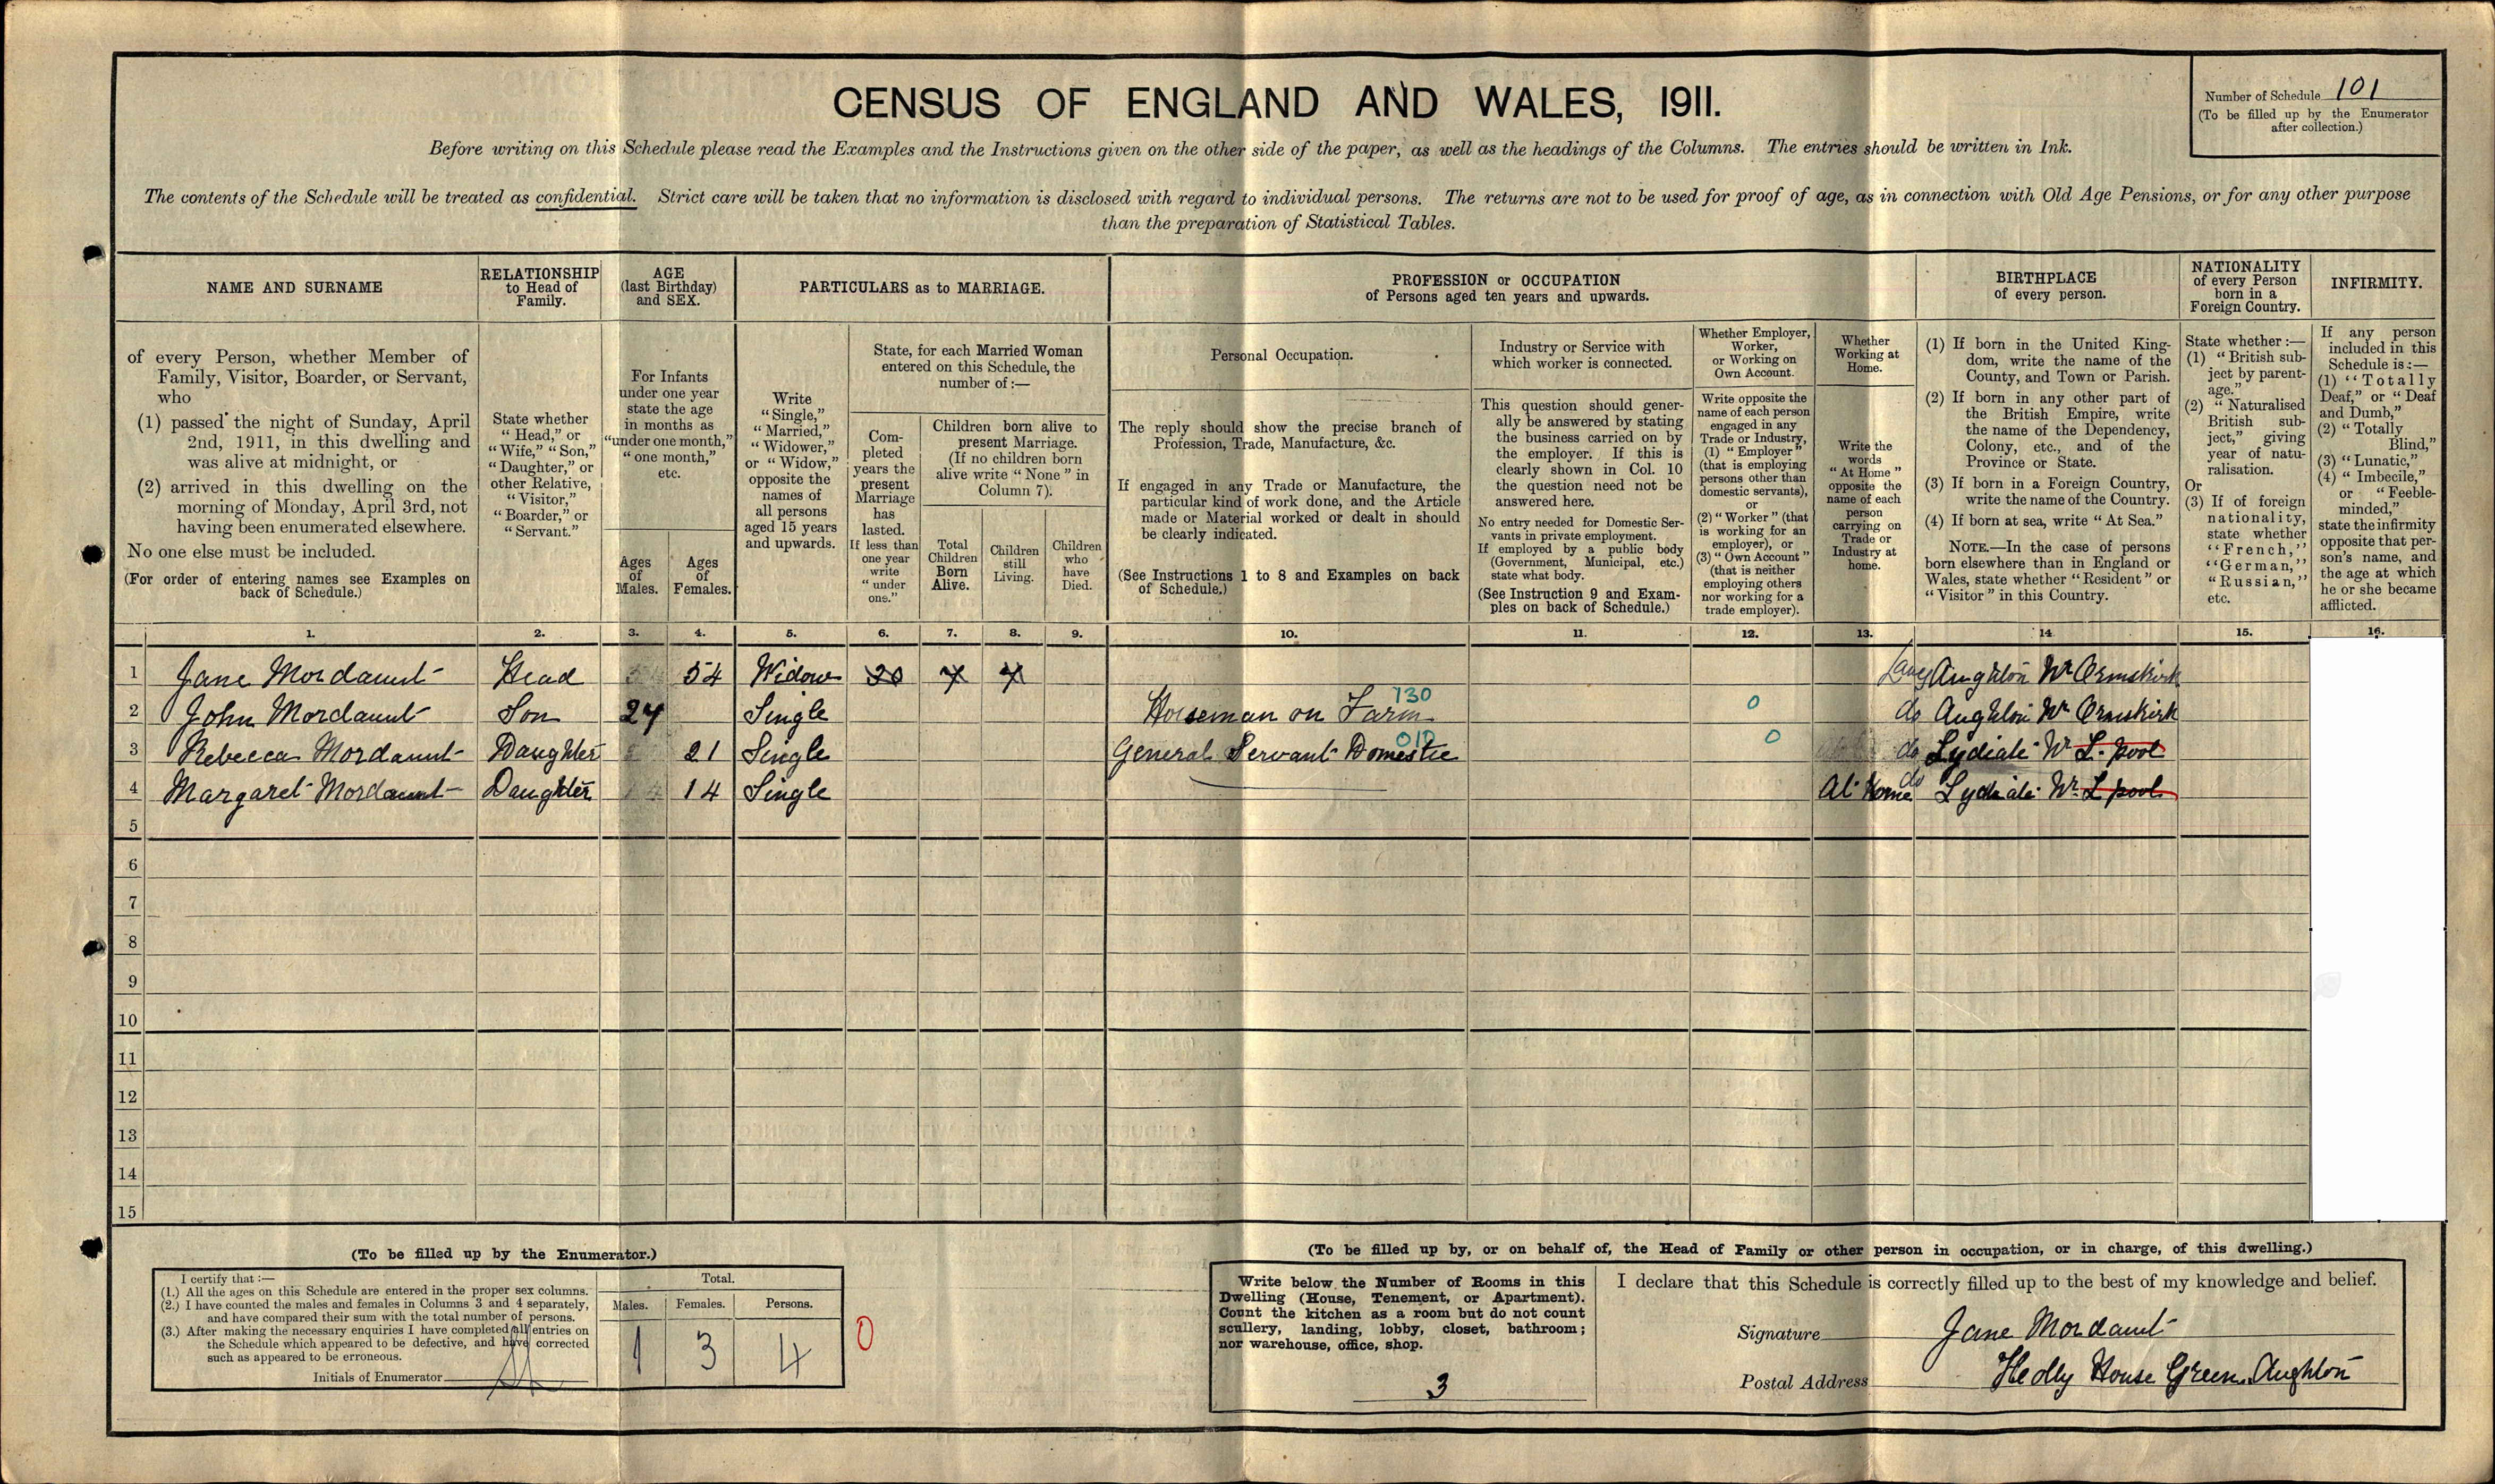 CENSUS OF ENGLAND AND WALES, 1911.
Number of Schedule 101
(To be filled up by the Enumerator
after collection.)
Before writing on this Schedule please read the Examples and the Instructions given on the other side of the paper, as well as the headings of the Columns. The entries should be written in Ink.
The contents of the Schedule will be treated as confidential. Strict care will be taken that no information is disclosed with regard to individual persons. The returns are not to be used for proof of age, as in connection with Old Age Pensions, or for any other purpose
than the preparation of Statistical Tables.
NAME AND SURNAME
of every Person, whether Member of
Family, Visitor, Boarder, or Servant,
who
(1) passed the night of Sunday, April
2nd, 1911, in this dwelling and
was alive at midnight, or
(2) arrived in this dwelling on the
morning of Monday, April 3rd, not
having been enumerated elsewhere.
No one else must be included.
(For order of entering names see Examples on
back of Schedule.)
RELATIONSHIP
to Head of
Family.
State whether
"Head," or
"Wife," "Son,"
"Daughter," or
other Relative,
"Visitor,"
"Boarder," or
"Servant."
AGE
(last Birthday)
and SEX.
For Infants
under one year
state the age
in months as
"under one month,"
"one month,"
etc.
Ages
of
Males.
Ages
of
Females.
PARTICULARS as to MARRIAGE.
Write
"Single,"
"Married,"
"Widower,"
or "Widow,"
opposite the
names of
all persons
aged 15 years
and upwards.
State, for each Married Woman
entered on this Schedule, the
number of :—
Com-
pleted
years the
present
Marriage
has
lasted.
If less than
one year
write
"under
one."
Children born alive to
present Marriage.
(If no children born
alive write "None" in
Column 7).
Total
Children
Born
Alive.
Children
still
Living.
Children
who
have
Died.
PROFESSION or OCCUPATION
of Persons aged ten years and upwards.
Personal Occupation.
The reply should show the precise branch of
Profession, Trade, Manufacture, &c.
If engaged in any Trade or Manufacture, the
particular kind of work done, and the Article
made or Material worked or dealt in should
be clearly indicated.
(See Instructions 1 to 8 and Examples on back
of Schedule.)
Industry or Service with
which worker is connected.
This question should gener-
ally be answered by stating
the business carried on by
the employer. If this is
clearly shown in Col. 10
the question need not be
answered here.
No entry needed for Domestic Ser-
vants in private employment.
If employed by a public body
(Government, Municipal, etc.)
state what body.
(See Instruction 9 and Exam-
ples on back of Schedule.)
Whether Employer,
Worker,
or Working on
Own Account.
Write opposite the
name of each person
engaged in any
Trade or Industry,
(1) "Employer"
(that is employing
persons other than
domestic servants),
or
(2) "Worker" (that
is working for an
employer), or
(3) "Own Account"
(that is neither
employing others
nor working for a
trade employer).
Whether
Working at
Home.
Write the
words
"At Home"
opposite the
name of each
person
carrying on
Trade or
Industry at
home.
BIRTHPLACE
of every person.
(1) If born in the United King-
dom, write the name of the
County, and Town or Parish.
(2) If born in any other part of
the British Empire, write
the name of the Dependency,
Colony, etc., and of the
Province or State.
(3) If born in a Foreign Country,
write the name of the Country.
(4) If born at sea, write "At Sea."
NOTE.—In the case of persons
born elsewhere than in England or
Wales, state whether "Resident" or
"Visitor" in this Country.
NATIONALITY
of every Person
born in a
Foreign Country.
State whether :—
(1) "British sub-
ject by parent-
age."
(2) "Naturalised
British sub-
ject," giving
year of natu-
ralisation.
Or
(3) If of foreign
nationality,
state whether
"French,"
"German,"
"Russian,"
etc.
INFIRMITY.
If any person
included in this
Schedule is:—
(1) "Totally
Deaf," or "Deaf
and Dumb,"
(2) "Totally
Blind,"
(3) "Lunatic,"
(4) "Imbecile,"
or "Feeble-
minded,"
state the infirmity
opposite that per-
son's name, and
the age at which
he or she became
afflicted.
1. 2. 3. 4. 5. 6. 7. 8. 9. 10. 11. 12. 13. 14. 15. 16.
1 Jane Mordaunt Head 54 Widow 20 Lancs Aughton Nr Ormskirk
2 John Mordaunt Son 24 Single Horseman on Farm 730 0 do Aughton Nr Ormskirk
3 Rebecca Mordaunt Daughter 21 Single General Servant Domestic 010 0 do Lydiate Nr L.pool
4 Margaret Mordaunt Daughter 14 Single At Home do Lydiate Nr L pool
5
6
7
8
9
10
11
12
13
14
15
(To be filled up by the Enumerator.)
I certify that :—
(1.) All the ages on this Schedule are entered in the proper sex columns.
(2.) I have counted the males and females in Columns 3 and 4 separately,
and have compared their sum with the total number of persons.
(3.) After making the necessary enquiries I have completed all entries on
the Schedule which appeared to be defective, and have corrected
such as appeared to be erroneous.
Initials of Enumerator
Total.
Males. Females. Persons.
1 3 4
0
(To be filled up by, or on behalf of, the Head of Family or other person in occupation, or in charge, of this dwelling.)
Write below the Number of Rooms in this
Dwelling (House, Tenement, or Apartment).
Count the kitchen as a room but do not count
scullery, landing, lobby, closet, bathroom;
nor warehouse, office, shop.
3
I declare that this Schedule is correctly filled up to the best of my knowledge and belief.
Signature Jane Mordaunt
Postal Address Hedly House Green Aughton